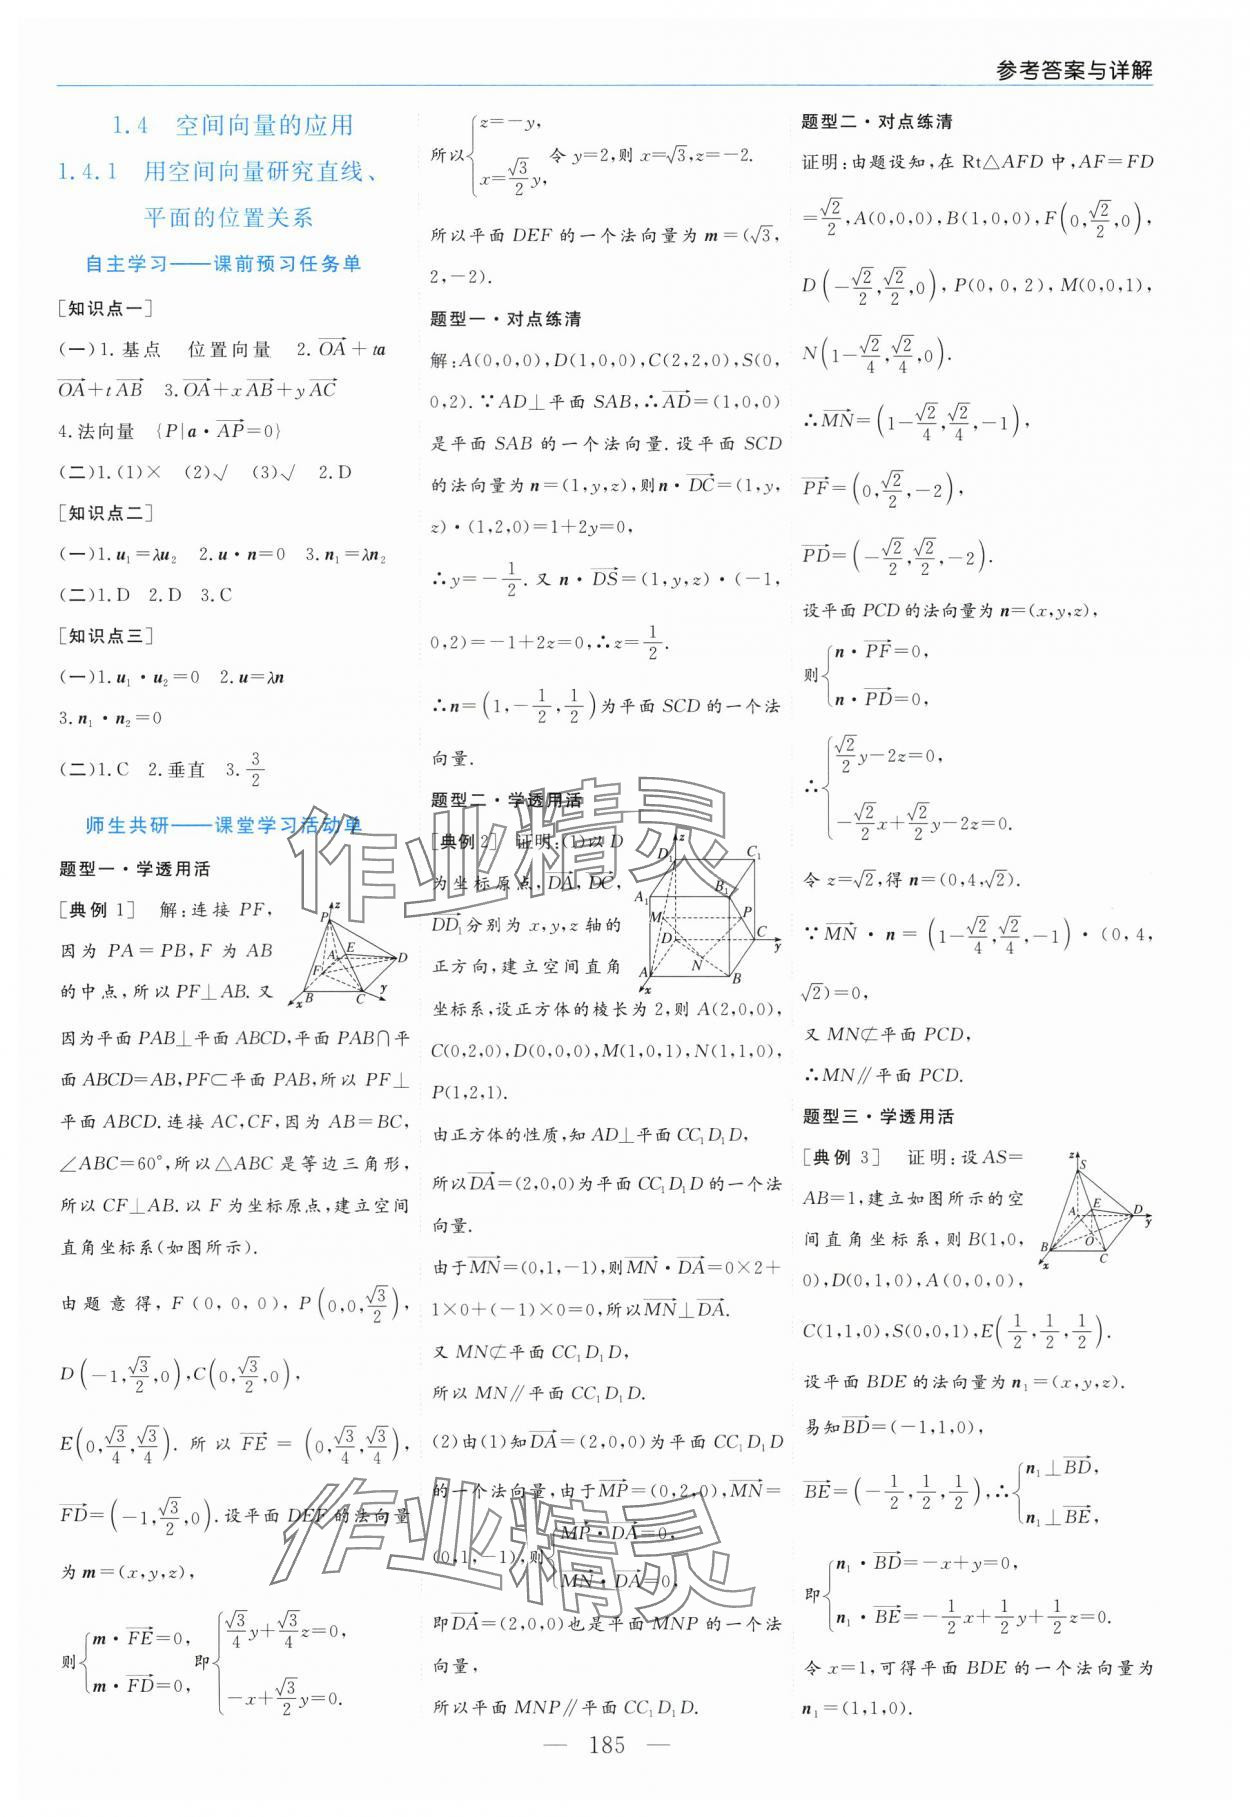 参考答案与详解
1.4 空间向量的应用
1.4.1 用空间向量研究直线、
平面的位置关系
自主学习——课前预习任务单
[知识点一]
(一)1.基点 位置向量 2.$\overrightarrow{OA}+ta$
$\overrightarrow{OA}+t\overrightarrow{AB}$ 3.$\overrightarrow{OA}+x\overrightarrow{AB}+y\overrightarrow{AC}$
4.法向量 {P|a·$\overrightarrow{AP}$=0}
(二)1.(1)× (2)√ (3)√ 2.D
[知识点二]
(一)1.u₁=λu₂ 2.u·n=0 3.n₁=λn₂
(二)1.D 2.D 3.C
[知识点三]
(一)1.u₁·u₂=0 2.u=λn
3.n₁·n₂=0
(二)1.C 2.垂直 3.$\frac{3}{2}$
师生共研——课堂学习活动单
题型一·学透用活
[典例1] 解:连接PF,
因为PA=PB,F为AB
的中点,所以PF⊥AB.又
因为平面PAB⊥平面ABCD,平面PAB∩平
面ABCD=AB,PF⊂平面PAB,所以PF⊥
平面ABCD.连接AC,CF,因为AB=BC,
∠ABC=60°,所以△ABC是等边三角形,
所以CF⊥AB.以F为坐标原点,建立空间
直角坐标系(如图所示).
由题意得,F(0,0,0),P$\left(0,0,\frac{\sqrt{3}}{2}\right)$,
D$\left(-1,\frac{\sqrt{3}}{2},0\right)$,C$\left(0,\frac{\sqrt{3}}{2},0\right)$,
E$\left(0,\frac{\sqrt{3}}{4},\frac{\sqrt{3}}{4}\right)$.所以$\overrightarrow{FE}$=$\left(0,\frac{\sqrt{3}}{4},\frac{\sqrt{3}}{4}\right)$,
$\overrightarrow{FD}$=$\left(-1,\frac{\sqrt{3}}{2},0\right)$.设平面DEF的法向量
为m=(x,y,z),
则$\begin{cases}m·\overrightarrow{FE}=0,\\m·\overrightarrow{FD}=0,\end{cases}$即$\begin{cases}\frac{\sqrt{3}}{4}y+\frac{\sqrt{3}}{4}z=0,\\-x+\frac{\sqrt{3}}{2}y=0.\end{cases}$
所以$\begin{cases}z=-y,\\x=\frac{\sqrt{3}}{2}y,\end{cases}$令y=2,则x=$\sqrt{3}$,z=-2.
所以平面DEF的一个法向量为m=($\sqrt{3}$,
2,-2).
题型一·对点练清
解:A(0,0,0),D(1,0,0),C(2,2,0),S(0,
0,2).∵AD⊥平面SAB,∴$\overrightarrow{AD}$=(1,0,0)
是平面SAB的一个法向量.设平面SCD
的法向量为n=(1,y,z),则n·$\overrightarrow{DC}$=(1,y,
z)·(1,2,0)=1+2y=0,
∴y=-$\frac{1}{2}$.又n·$\overrightarrow{DS}$=(1,y,z)·(-1,
0,2)=-1+2z=0,∴z=$\frac{1}{2}$.
∴n=$\left(1,-\frac{1}{2},\frac{1}{2}\right)$为平面SCD的一个法
向量.
题型二·学透用活
[典例2] 证明:(1)以D
为坐标原点,$\overrightarrow{DA}$,$\overrightarrow{DC}$,
$\overrightarrow{DD_1}$分别为x,y,z轴的
正方向,建立空间直角
坐标系,设正方体的棱长为2,则A(2,0,0),
C(0,2,0),D(0,0,0),M(1,0,1),N(1,1,0),
P(1,2,1).
由正方体的性质,知AD⊥平面CC₁D₁D,
所以$\overrightarrow{DA}$=(2,0,0)为平面CC₁D₁D的一个法
向量.
由于$\overrightarrow{MN}$=(0,1,-1),则$\overrightarrow{MN}·\overrightarrow{DA}$=0×2+
1×0+(-1)×0=0,所以$\overrightarrow{MN}⊥\overrightarrow{DA}$.
又MN⊄平面CC₁D₁D,
所以MN∥平面CC₁D₁D.
(2)由(1)知$\overrightarrow{DA}$=(2,0,0)为平面CC₁D₁D
的一个法向量,由于$\overrightarrow{MP}$=(0,2,0),$\overrightarrow{MN}$=
(0,1,-1),则$\begin{cases}\overrightarrow{MP}·\overrightarrow{DA}=0,\\\overrightarrow{MN}·\overrightarrow{DA}=0,\end{cases}$
即$\overrightarrow{DA}$=(2,0,0)也是平面MNP的一个法
向量,
所以平面MNP∥平面CC₁D₁D.
题型二·对点练清
证明:由题设知,在Rt△AFD中,AF=FD
=$\frac{\sqrt{2}}{2}$,A(0,0,0),B(1,0,0),F$\left(0,\frac{\sqrt{2}}{2},0\right)$,
D$\left(-\frac{\sqrt{2}}{2},\frac{\sqrt{2}}{2},0\right)$,P(0,0,2),M(0,0,1),
N$\left(1-\frac{\sqrt{2}}{4},\frac{\sqrt{2}}{4},0\right)$.
∴$\overrightarrow{MN}$=$\left(1-\frac{\sqrt{2}}{4},\frac{\sqrt{2}}{4},-1\right)$,
$\overrightarrow{PF}$=$\left(0,\frac{\sqrt{2}}{2},-2\right)$,
$\overrightarrow{PD}$=$\left(-\frac{\sqrt{2}}{2},\frac{\sqrt{2}}{2},-2\right)$.
设平面PCD的法向量为n=(x,y,z),
则$\begin{cases}n·\overrightarrow{PF}=0,\\n·\overrightarrow{PD}=0,\end{cases}$
∴$\begin{cases}\frac{\sqrt{2}}{2}y-2z=0,\\-\frac{\sqrt{2}}{2}x+\frac{\sqrt{2}}{2}y-2z=0.\end{cases}$
令z=$\sqrt{2}$,得n=(0,4,$\sqrt{2}$).
∵$\overrightarrow{MN}$·n=$\left(1-\frac{\sqrt{2}}{4},\frac{\sqrt{2}}{4},-1\right)$·(0,4,
$\sqrt{2}$)=0,
又MN⊄平面PCD,
∴MN∥平面PCD.
题型三·学透用活
[典例3] 证明:设AS=
AB=1,建立如图所示的空
间直角坐标系,则B(1,0,
0),D(0,1,0),A(0,0,0),
C(1,1,0),S(0,0,1),E$\left(\frac{1}{2},\frac{1}{2},\frac{1}{2}\right)$.
设平面BDE的法向量为n₁=(x,y,z).
易知$\overrightarrow{BD}$=(-1,1,0),
$\overrightarrow{BE}$=$\left(-\frac{1}{2},\frac{1}{2},\frac{1}{2}\right)$,∴$\begin{cases}n_1⊥\overrightarrow{BD},\\n_1⊥\overrightarrow{BE},\end{cases}$
即$\begin{cases}n_1·\overrightarrow{BD}=-x+y=0,\\n_1·\overrightarrow{BE}=-\frac{1}{2}x+\frac{1}{2}y+\frac{1}{2}z=0.\end{cases}$
令x=1,可得平面BDE的一个法向量为
n₁=(1,1,0).
— 185 —
作业精灵
作业精灵